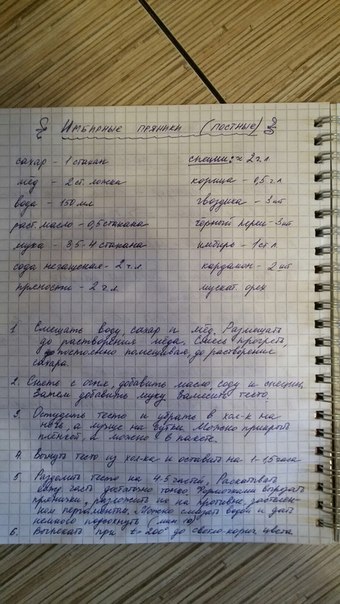 Имбирные пряники (постные)
сахар - 1 стакан
мёд - 2 ст. ложки
вода - 150 мл
раст. масло - 0,5 стакана
мука - 3,5-4 стакана
сода негашеная - 2 ч.л
пряности - 2 ч.л
специи: ≈ 2 ч.л.
корица - 0,5 ч.л
гвоздика - 3 шт
чёрный перец - 3 шт
имбирь - 1 ст.л
кардамон - 2 шт
мускат. орех
1. Смешать воду, сахар и мёд. Размешать
до растворения мёда. Смесь прогреть,
постоянно помешивая, до растворение
сахара.
2. Снять с огня, добавить масло, соду и специи,
Затем добавить муку. Замесить тесто.
3. Остудить тесто и убрать в хол-к на
ночь, а лучше на сутки. Можно прикрыть
плёнкой, а можно и в пакете.
4. Вынуть тесто из хол-ка и оставить на 1-1,5 часа
5. Разделить тесто на 4-5 частей, Раскатывать
каждую часть достаточно тонко. Формочками вырезать
пряники, разложить их на противне, застелен-
ном пергаментом. Можно смазать водой и дать
немного подсохнуть (мин 10).
6. Выпекать при t = 200° до светло-корич. цвета